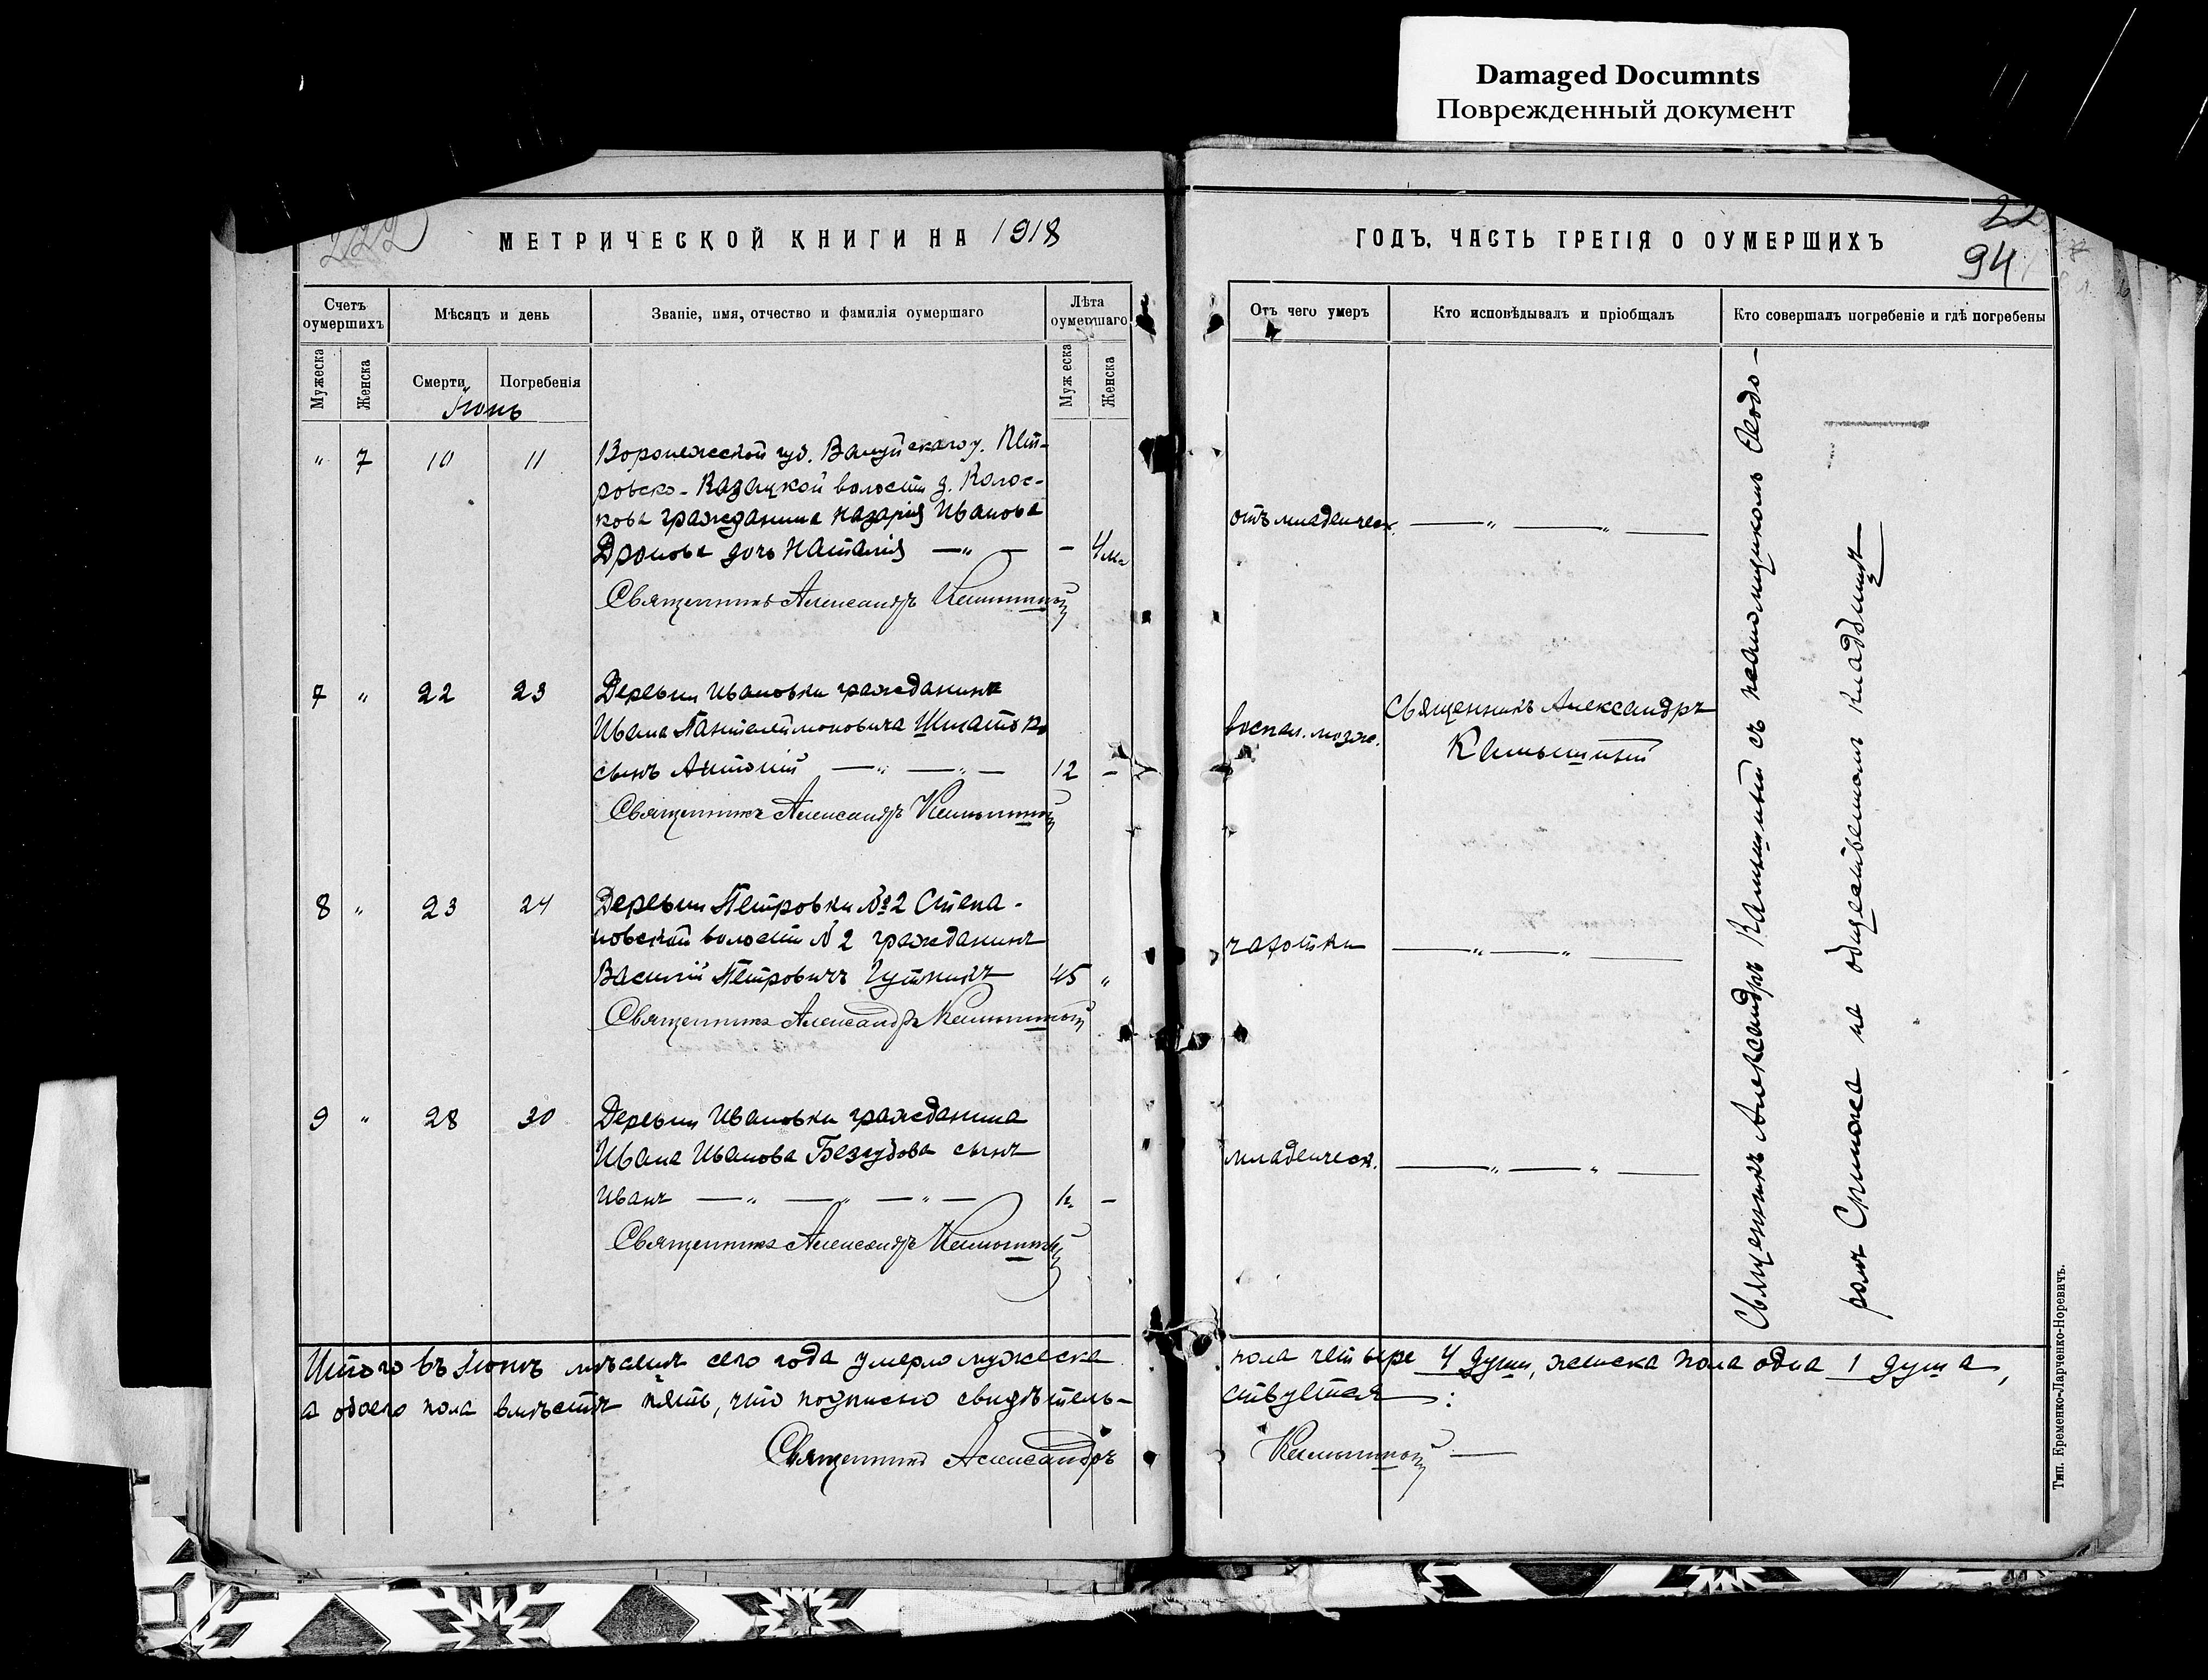 Damaged Documnts
Поврежденный документ
222
МЕТРИЧЕСКОЙ КНИГИ НА 1918
ГОДЪ, ЧАСТЬ ТРЕТІЯ О ОУМЕРШИХЪ
22
94
Счетъ оумершихъ
Мѣсяцъ и день
Званіе, имя, отчество и фамилія оумершаго
Лѣта оумершаго
Отъ чего умеръ
Кто исповѣдывалъ и пріобщалъ
Кто совершалъ погребеніе и гдѣ погребены
Мужеска
Женска
Смерти
Погребенія
Муж еска
Женска
Іюнь
" 7 10 11 Воронежской губ. Валуйскаго у. Пет-
ровско-Казацкой волости д. Колос-
кова гражданина Назарія Иванова
Дронова дочь Наталія — " — - 4 м.
отъ младенческ. — " — " —
Священникъ Александръ
7 " 22 23 Деревни Ивановки гражданина
Ивана Пантелеймоновича
сынъ Антоній — " — " — 12 -
воспал. мозга.
Священникъ Александръ
Священникъ Александръ
8 " 23 24 Деревни Петровки № 2 Степа-
новской волости № 2 гражданинъ
Василій Петровичъ 45 "
чахотки — " — " —
Священникъ Александръ
9 " 28 30 Деревни Ивановки гражданина
Ивана Иванова сынъ
Иванъ — " — " — " — -
младенческ. — " — " —
Священникъ Александръ
Священникъ Александръ съ псаломщикомъ Ѳеодо-
ромъ на общественномъ кладбищѣ
Итого въ Іюнѣ мѣсяцѣ сего года умерло мужеска
пола четыре 4 души, женска пола одна 1 душа,
а обоего пола вмѣстѣ пять, что подписью свидѣтель-
ствуется :
Священникъ Александръ
Тип. Еременко-Ларченко-Норевичъ.